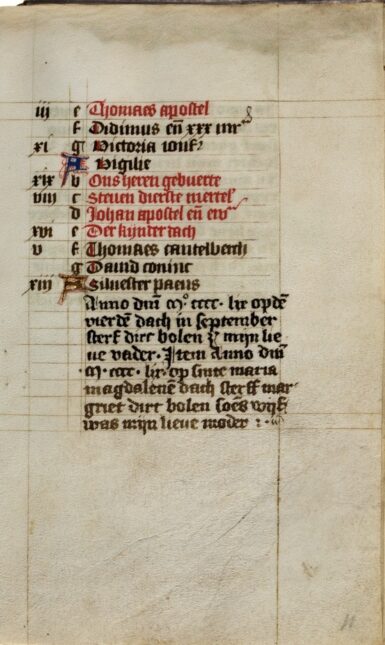 iii e Thomaes apostel
f Didimus en̄ xxx mr
xi g Victoria ionf
A Vigilie
xix b Ons heren gebuerte
viii c Steuen dierste mertel
d Johan apostel en̄ ew
xvi e Der kynder dach
v f Thomaes cantelberch
g Dauid coninc
xiii A Siluester paeus
Anno dm̄ mº cccc · lix op dē
vierdē dach in september
sterf dirc bolen mijn lie
ue vader · Item Anno dm̄
mº cccc · lix · op sinte maria
magdalenē dach sterff mar
griet dirc bolen soēs wijf
was mijn lieue moder
11